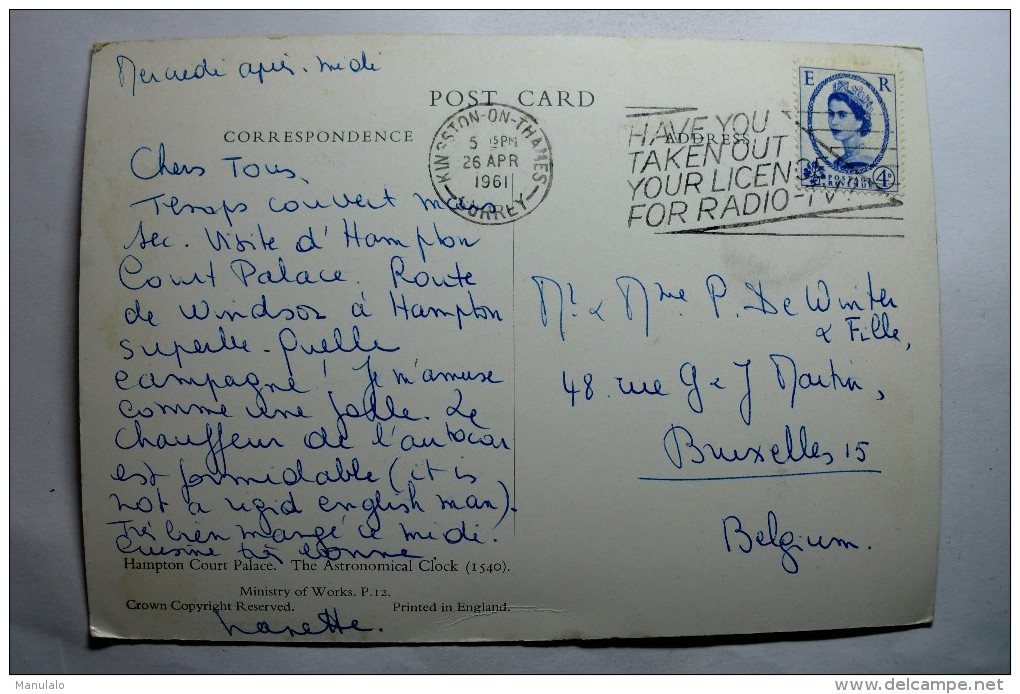 Mercredi après-midi
POST CARD
CORRESPONDENCE
ADDRESS
KINGSTON-ON-THAMES
5 15PM
26 APR
1961
SURREY
HAVE YOU
TAKEN OUT
YOUR LICENSE
FOR RADIO-TV?
E R
POSTAGE
REVENUE
4D
Chers Tous,
Temps couvert mais
sec. Visite d'Hampton
Court Palace. Route
de Windsor à Hampton
superbe. Quelle
campagne! Je m'amuse
comme une folle. Le
chauffeur de l'autocar
est formidable (it is
not a rigid english man).
Très bien mangé ce midi.
Cuisine très bonne.
Hampton Court Palace. The Astronomical Clock (1540).
Ministry of Works. P.12.
Crown Copyright Reserved. Printed in England.
Nanette.
Mr & Mme P. De Winter
& Fille,
48 rue G & J Martin,
Bruxelles 15
Belgium.
Manulalo
www.delcampe.net